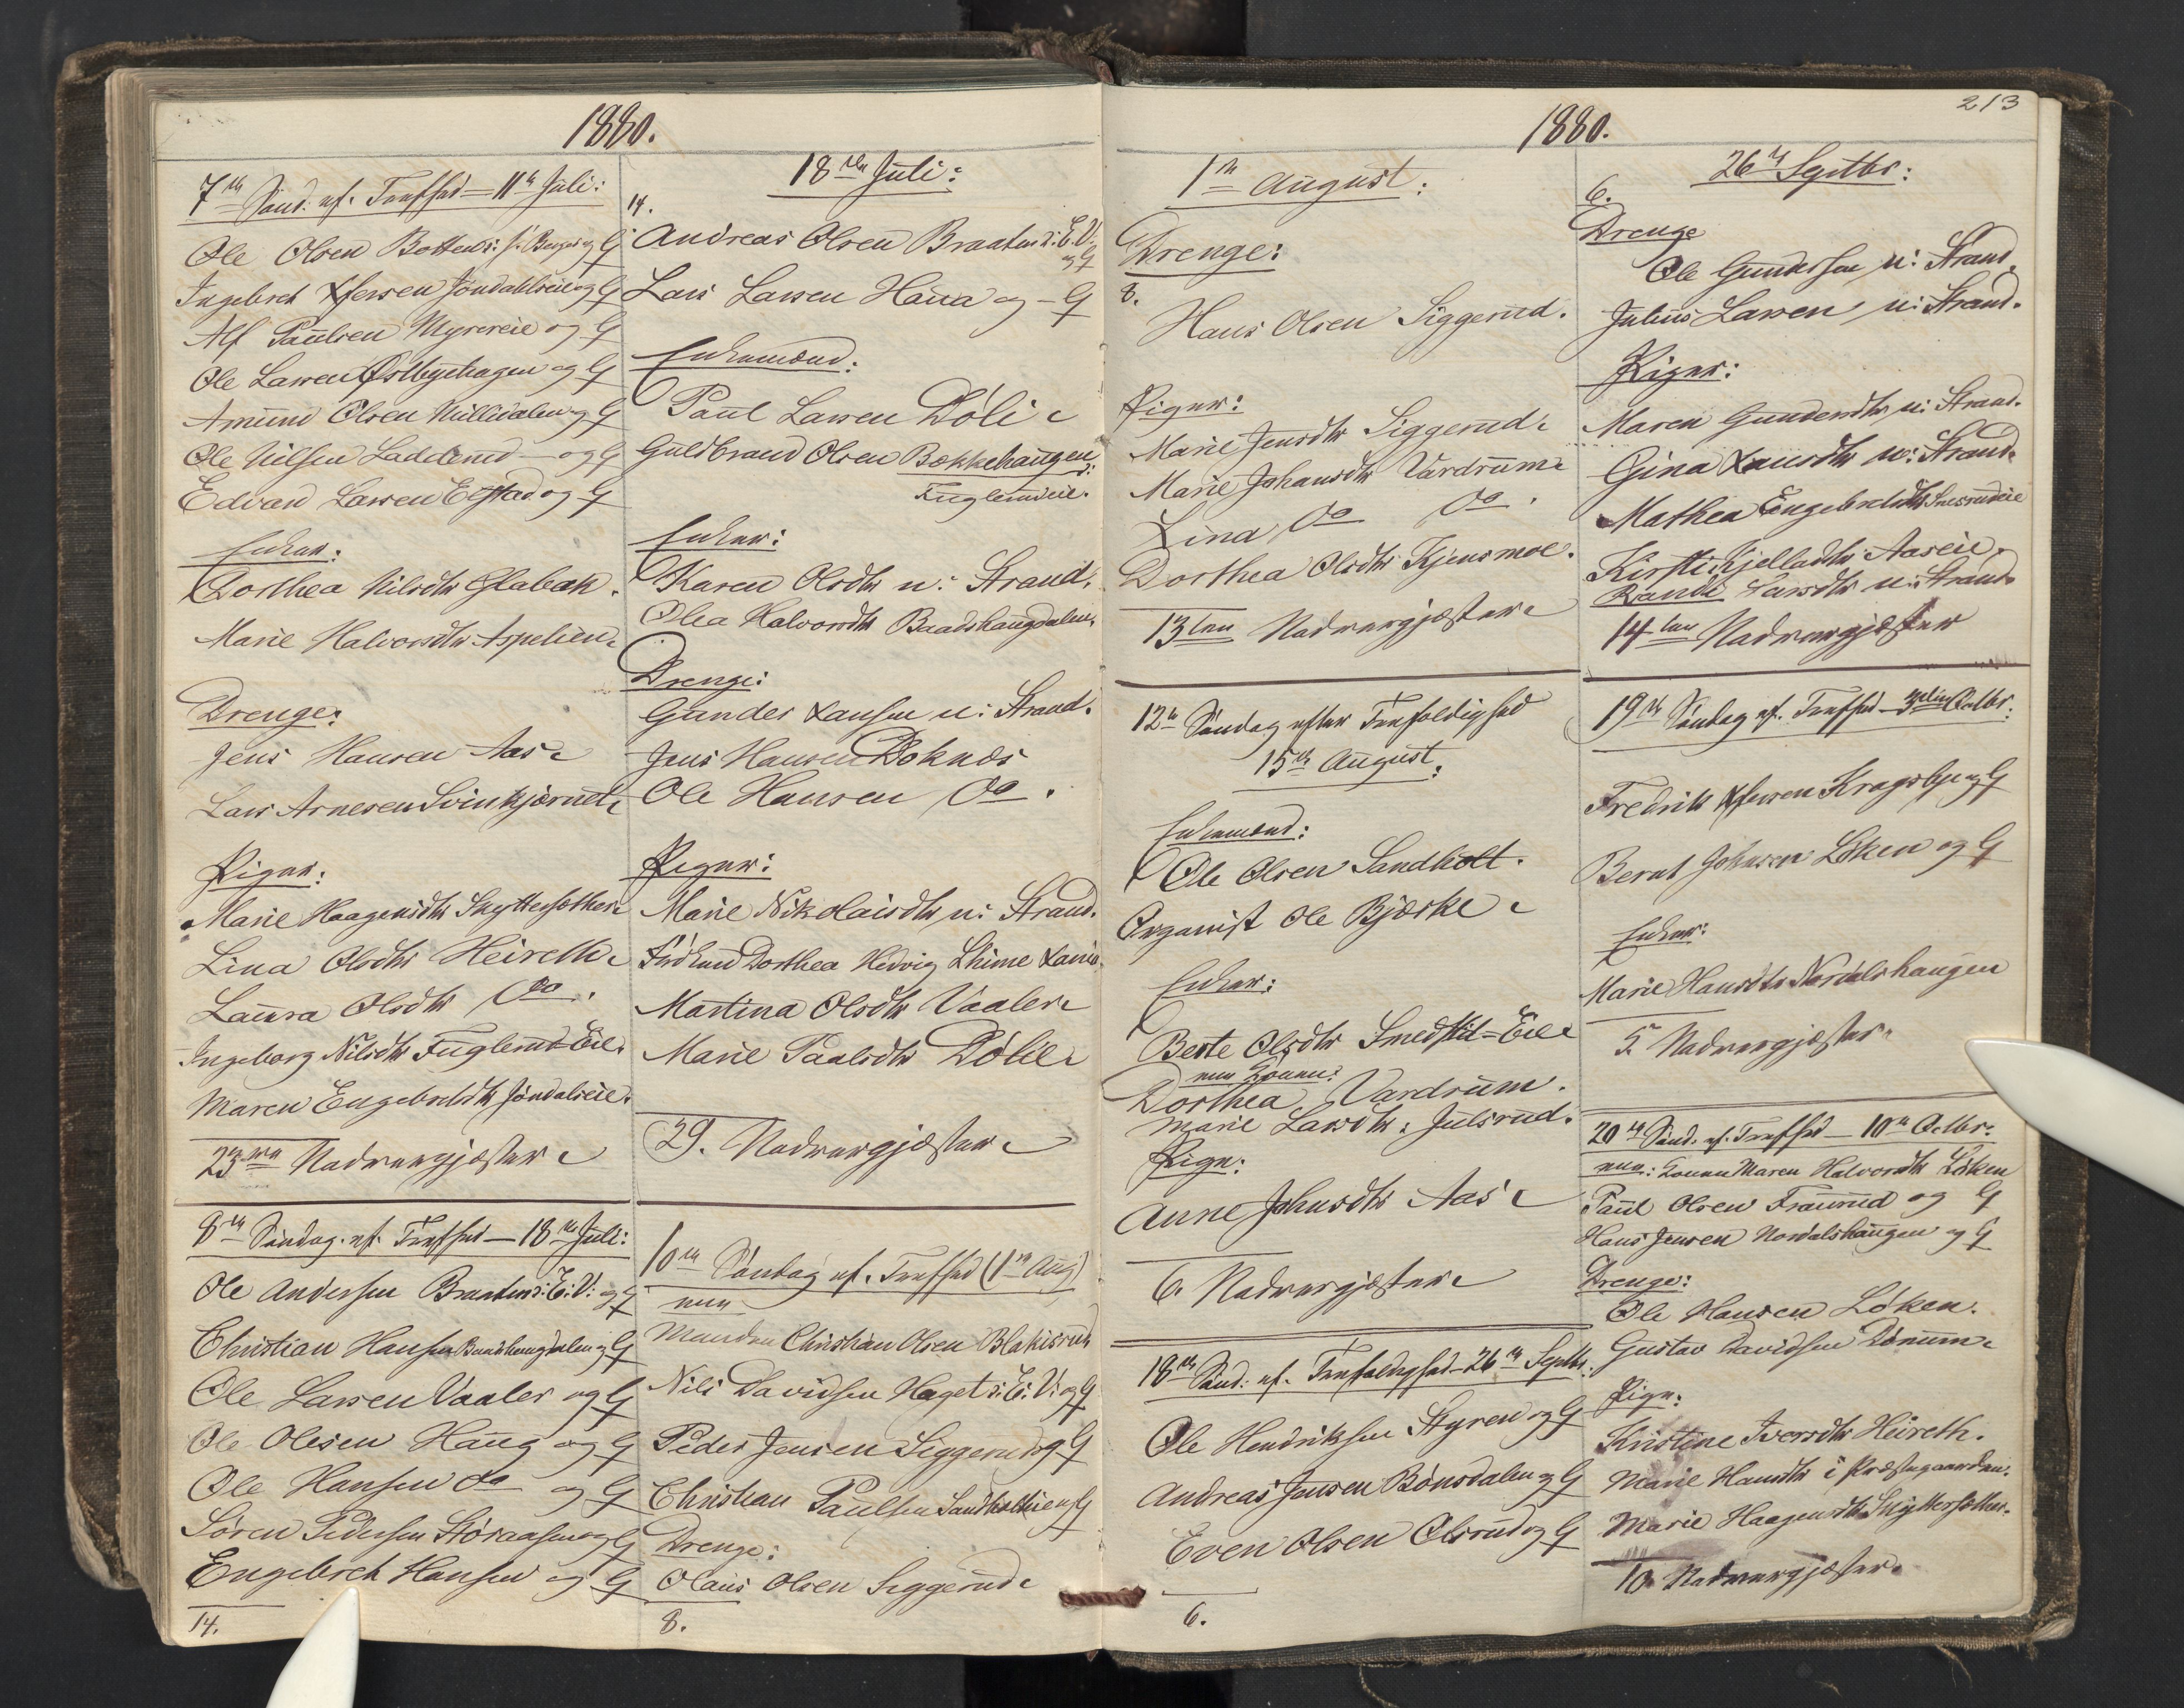 1880.
7de Sønd. ef. Trefhed – 11te Juli:
Ole Olsen Botten og G
Ingebret Ifversen Jøndahlseie og G
Alf Paulsen Myrereie og G
Ole Larsen Østbyehagen og G
Amund Olsen Nullidalen og G
Ole Nilsen Ladderud – og G
Edvard Larsen Elgstad og G
Enker:
Dorthea Nilsdtr Glabak.
Marie Halvorsdtr Aspelien.
Drenge:
Jens Hansen Aas.
Lars Arnesen Svinkjærnet.
Piger:
Marie Haagensdtr Skyttersæther.
Lina Olsdtr Heireth.
Laura Olsdtr Do.
Ingeborg Nilsdtr Fuglerud-Eie.
Maren Engebretsdtr Jøndalseie.
23 Nadvergjæster.
8de Søndag. ef. Trefhed – 18de Juli:
Ole Andersen Braaten i: E: V: og G
Christian Hansen Baadshaugdalen og G
Ole Larsen Vaaler og G
Ole Olesen Haug og G
Ole Hansen do og G
Søren Pedersen Storaasen og G
Engebret Hansen og G
14.
18de Juli:
14.
Andreas Olsen Braaten i: E. V:
og G
Lars Larsen Haua og – G
Enkemænd:
Paul Larsen Døli.
Guldbrand Olsen Bækkehaugen
Fuglerudeie.
Enker:
Karen Olsdtr u: Strand.
Olea Halvorsdtr Baadshaugdalen.
Drenge:
Gunder Larsen u: Strand.
Jens Hansen Boknæs
Ole Hansen Do.
Piger:
Marie Nikolaisdtr u: Strand.
Frøken Dorthea Hedvig Thime
Martina Olsdtr Vaaler.
Marie Paalsdtr Dølie.
29. Nadvergjæster.
10de Søndag ef. Trefhed (1ste Aug.)
nem
Manden Christian Olsen Blakisrud
Nils Davidsen Haget i: E: V: og G
Peder Jensen Siggerud og G
Christian Paulsen Sandholteie og G
Drenge:
Olaus Olsen Siggerud.
8.
213
1880.
1ste August:
Drenge:
8.
Hans Olsen Siggerud.
Piger:
Marie Jensdtr Siggerud.
Marie Johansdtr Vardrum.
Lina Do Do.
Dorthea Olsdtr Kjensmoe.
13ten Nadvergjæster.
12te Søndag efter Trefoldighed
15de August.
Enkemænd:
Ole Olsen Sandholt.
Organist Ole Bjærke.
Enker:
Berte Olsdtr Smedstid-Eie
nem Konen:
Dorthea Vardrum.
Marie Larsdtr. Julsrud.
Pige:
Anne Johnsdtr Aas.
6. Nadvergjæster.
18de Sønd: ef. Trefoldighed – 26de Septbr.
Ole Hendriksen Styren og G
Andreas Jensen Bønsdalen og G
Even Olsen Olsrud og G
6.
26de Septbr:
6.
Drenge
Ole Gundersen u: Strand.
Julius Larsen u: Strand.
Piger:
Maren Gundersdtr u: Strand.
Gina Larsdtr u: Strand.
Mathea Engebretsdtr Snesrudeie
Kirsti Kjelladtr Aaseie.
Randi Larsdtr u: Strand.
14ten Nadvergjæster
19de Søndag ef. Trefhed – 3die Octbr.
Fredrik Ifversen Kragsbye og G
Bernt Johnsen Løken og G
Enker:
Marie Hansdtr Nordalshaugen
5. Nadvergjæster.
20de Sønd. ef. Trefhed – 10de Octbr:
nem: Konen Maren Halvorsdtr Løken
Paul Olsen Fraurud og G
Hans Jensen Nordalshaugen og G
Drenge:
Ole Hansen Løken.
Gustav Davidsen Dønnum.
Pige:
Kristine Iversdtr Heireth.
Marie Hansdtr i Præstegaarden.
Marie Haagensdtr Skyttersæther.
10 Nadvergjæster.